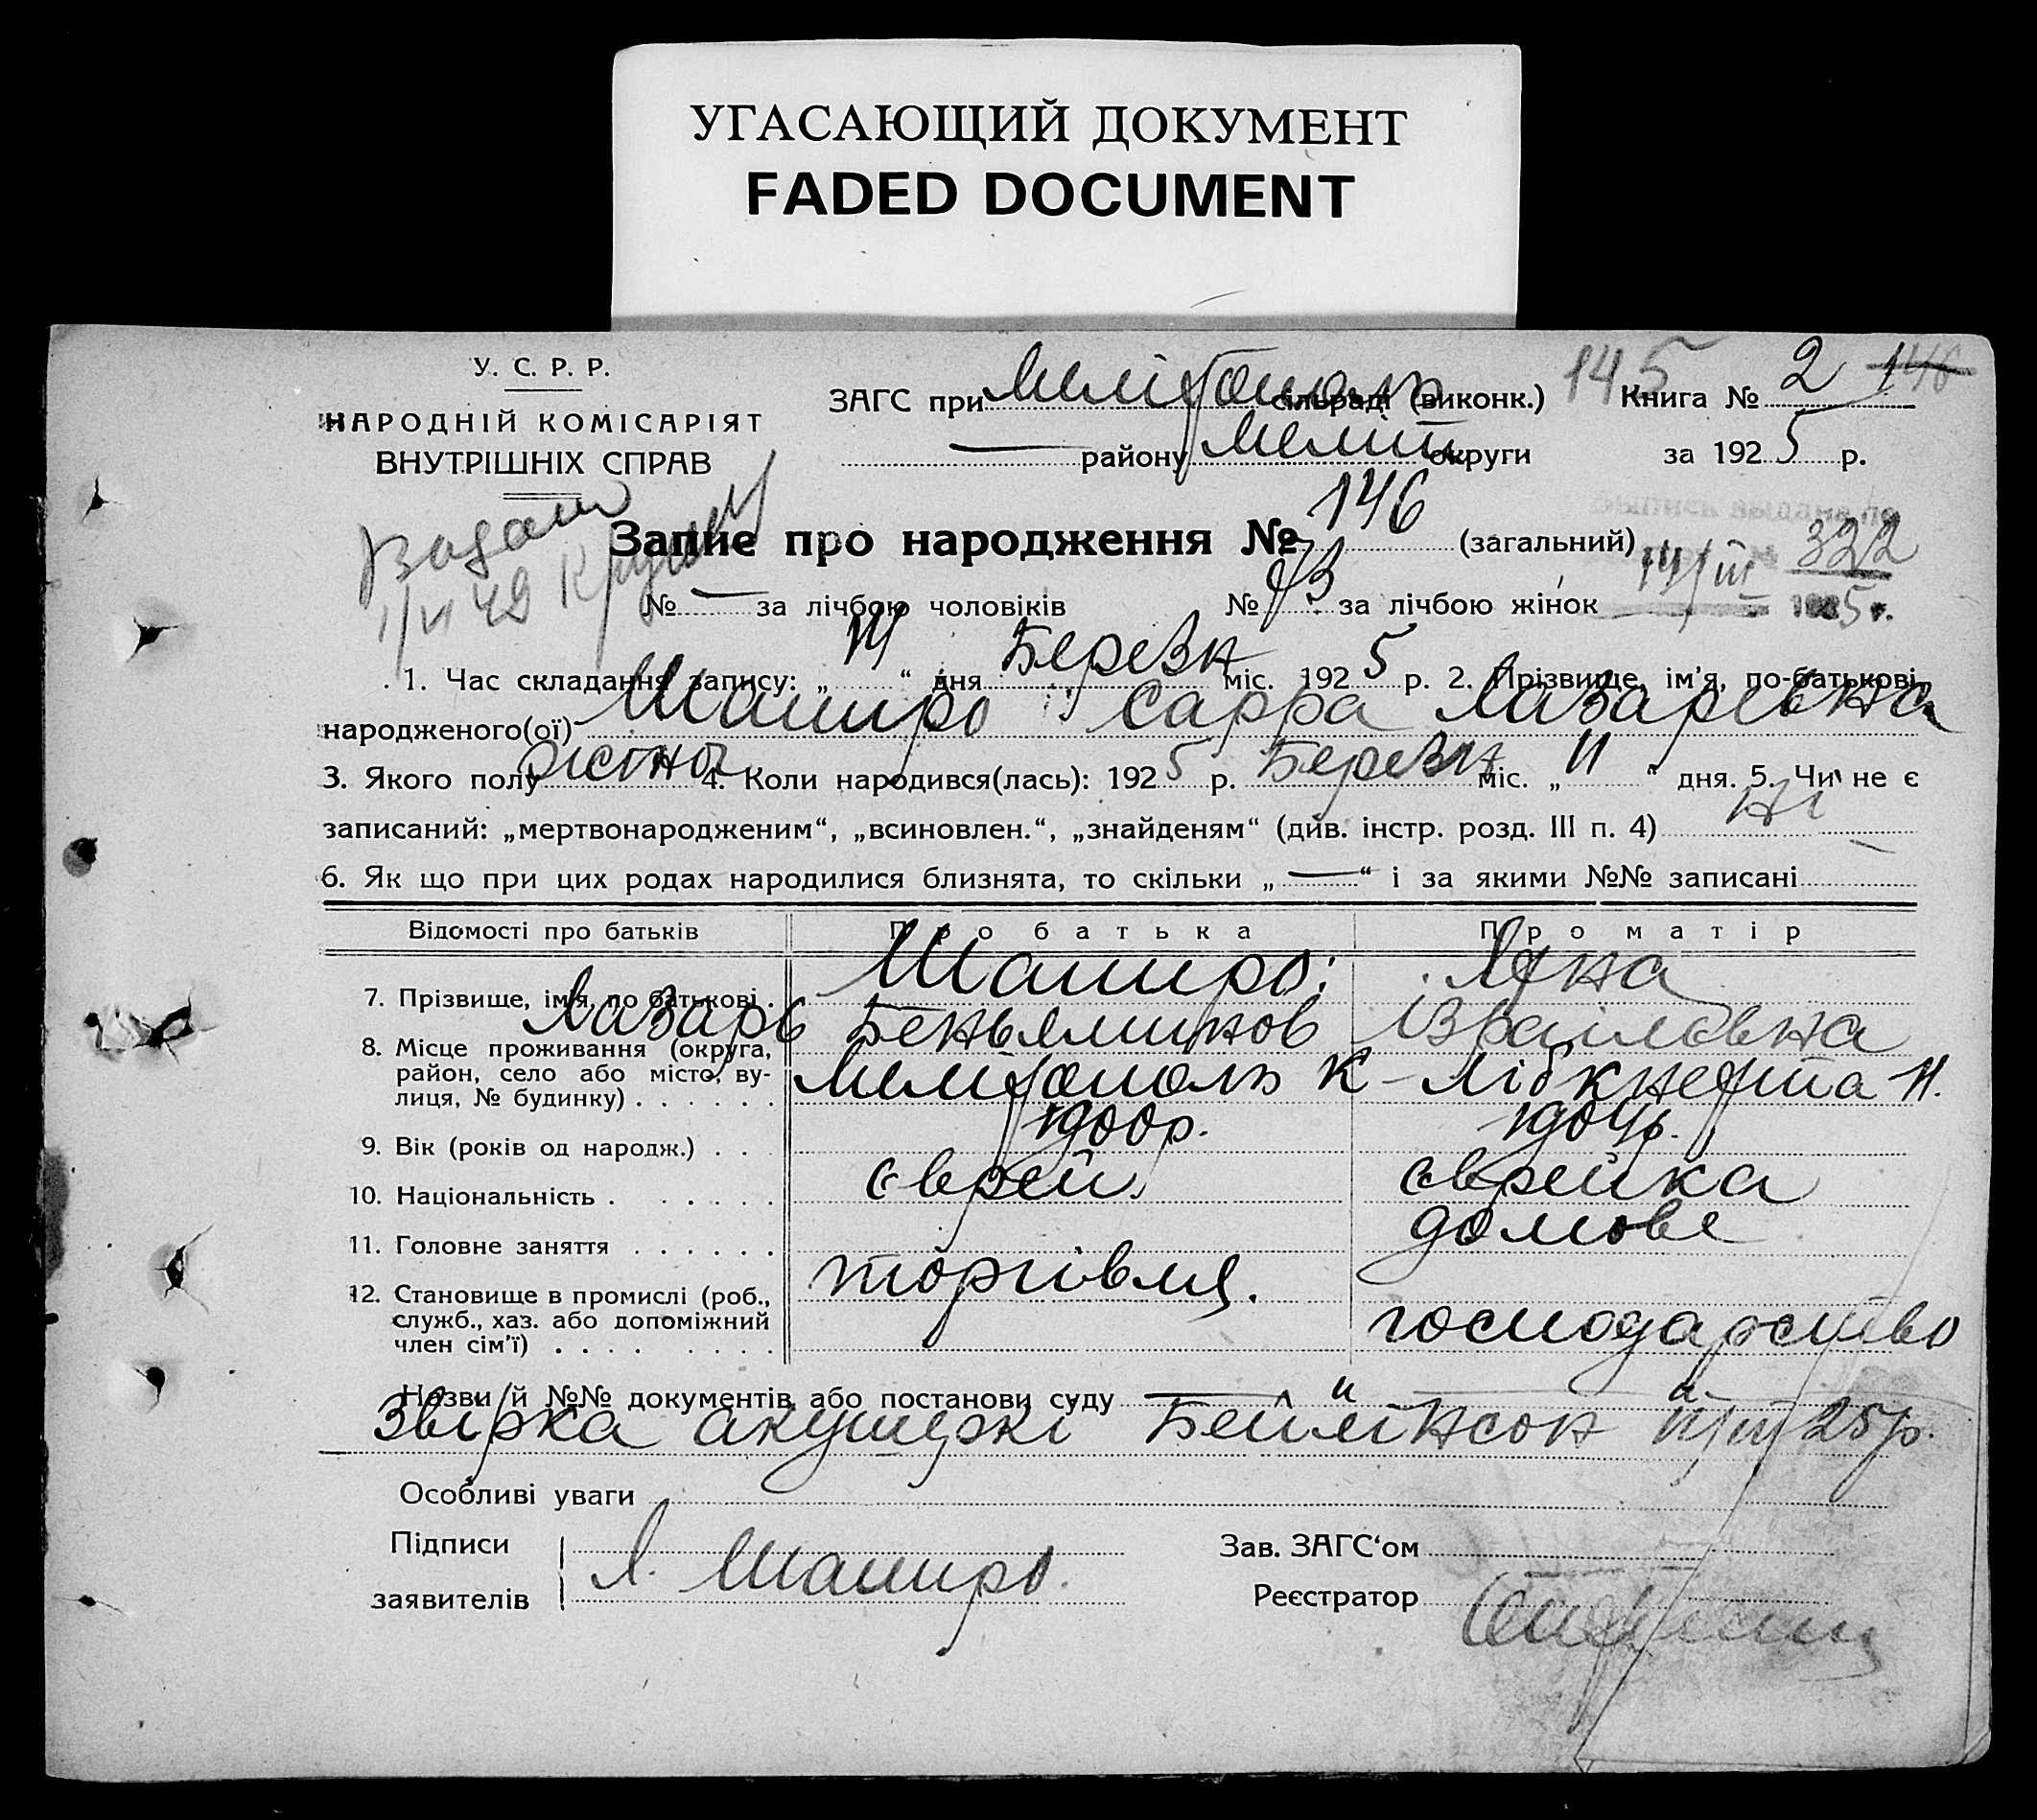 УГАСАЮЩИЙ ДОКУМЕНТ
FADED DOCUMENT
У. С. Р. Р.
НАРОДНІЙ КОМІСАРІЯТ
ВНУТРІШНІХ СПРАВ
ЗАГС при Мелітополь сільраді (виконк.) 145 Книга № 2 146
— району Меліт. округи за 1925 р.
Запис про народження № 146 (загальний)
Выпись выдана по
322
14/III 1925 г.
№ — за лічбою чоловіків № 73 за лічбою жінок
1. Час складання запису: „ “ дня Березн міс. 1925 р. 2. Прізвище, ім'я, по-батькові
народженого(ої) Шапиро Сарра Лазаревна
3. Якого полу жіноч 4. Коли народився(лась): 1925 р. Березн міс. „11“ дня. 5. Чи не є
записаний: „мертвонародженим“, „всиновлен.“, „знайденям“ (див. інстр. розд. III п. 4) ні
6. Як що при цих родах народилися близнята, то скільки „—“ і за якими №№ записані
Відомості про батьків Про батька Про матір
7. Прізвище, ім'я, по батькові . Шапиро;
Лазарь Беньяминов Ізраілевна
8. Місце проживання (округа,
район, село або місто, ву-
лиця, № будинку) . . . . . . Мелітополь К-Лібкнехта 11.
9. Вік (років од народж.) . . .
10. Національність . . . . . . єврей. єврейка
11. Головне заняття . . . . . . торгівля. домове
12. Становище в промислі (роб.,
служб., хаз. або допоміжний
член сім'ї) . . . . . . . . господарство
Назви й №№ документів або постанови суду —
Звірка акушерки Бейлінсон 11/III 25 р.
Особливі уваги
Підписи
заявителів Л. Шапиро.
Зав. ЗАГС‘ом
Реєстратор